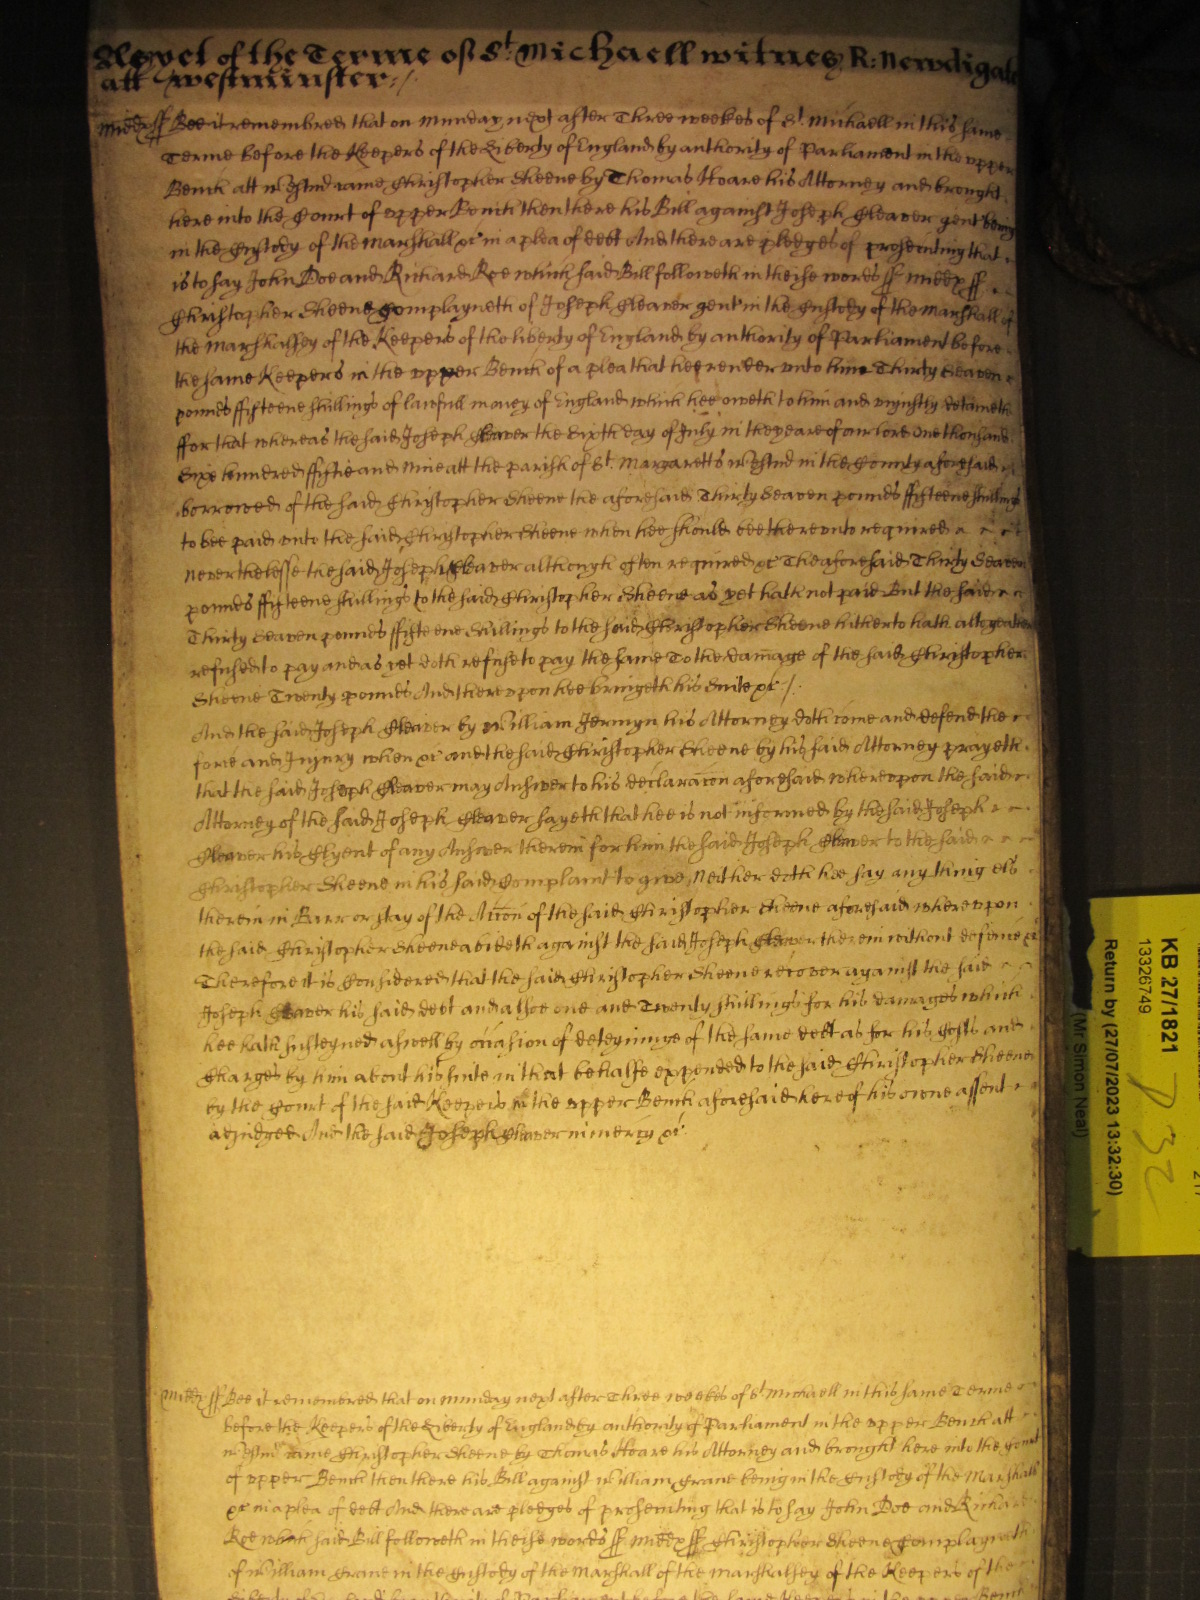 As yet of the Terme of St. Michaell witnes R: Newdigate
att Westminster:/
Middx ss Bee it remembred that on Munday next after Three weekes of St. Michaell in this same
Terme before the Keepers of the Liberty of England by authority of Parliament in the upper
Bench att Westmr came Christopher Skeene by Thomas Hoare his Attorney and brought
here into the Court of upper Bench then there his Bill against Joseph Cleaver gent being
in the Custody of the Marshall &c in a plea of debt And there are pledges of prosecuting that
is to say John Doe and Richard Roe which said Bill followeth in theise words ss Middx ss
Christopher Skeene Complayneth of Joseph Cleaver gent in the Custody of the Marshall of
the Marshalsey of the Keepers of the liberty of England by authority of Parliament before
the same Keepers in the upper Bench of a plea that hee render unto him Thirty Seaven
pounds ffifteene shillings of lawfull money of England which hee oweth to him and uniustly detaineth
ffor that whereas the said Joseph Cleaver the Sixth day of July in the yeare of our lord one thousand
Sixe hundred ffiftie and Nine att the parish of St. Margaretts Westmr in the County aforesaid
borrowed of the said Christopher Skeene the aforesaid Thirty Seaven pounds ffifteene shillings
to bee paid unto the said Christopher Skeene when hee should bee thereunto required
Neverthelesse the said Joseph Cleaver although often required &c The aforesaid Thirty Seaven
pounds ffifteene shillings to the said Christopher Skeene as yet hath not paid But the said
Thirty Seaven pounds ffifteene Shillings to the said Christopher Skeene hitherto hath altogeather
refused to pay and as yet doth refuse to pay the same To the damage of the said Christopher
Skeene Twenty pounds And thereupon hee bringeth his Suite &c /.
And the said Joseph Cleaver by William Jermyn his Attorney doth come and defend the
force and Injury when &c And the said Christopher Skeene by his said Attorney prayeth
that the said Joseph Cleaver may Answer to his declaracon aforesaid whereupon the said
Attorney of the said Joseph Cleaver sayeth that hee is not informed by the said Joseph
Cleaver his Clyent of any Answer therein for him the said Joseph Cleaver to the said
Christopher Skeene in his said Complaint to give, Neither doth hee say any thing els
therein in Barr or stay of the Accon of the said Christopher Skeene aforesaid whereupon
the said Christopher Skeene abideth against the said Joseph Cleaver therein without defence &c
Therefore it is Considered that the said Christopher Skeene recover against the said
Joseph Cleaver his said debt and alsoe one and Twenty shillings for his damages which
hee hath susteyned aswell by occasion of deteyninge of the same debt as for his Costs and
Charges by him about his suite in that behalfe expended to the said Christopher Skeene
by the Court of the said Keepers in the upper Bench aforesaid here of his owne assent
adiudged And the said Joseph Cleaver in mercy &c
Middx ss Bee it remembred that on Munday next after Three weekes of St Michaell in this same Terme
before the Keepers of the Liberty of England by authority of Parliament in the upper Bench att
Westmr came Christopher Skeene by Thomas Hoare his Attorney and brought here into the Court
of upper Bench then there his Bill against William Crane being in the Custody of the Marshall
&c in a plea of debt And there are pledges of prosecuting that is to say John Doe and Richard
Roe which said Bill followeth in theise words ss Middx ss Christopher Skeene Complayneth
of William Crane in the Custody of the Marshall of the Marshalsey of the Keepers of the
KB 27/1821
13326749
Return by (27/07/2023 13:32:30)
(Mr Simon Neal)